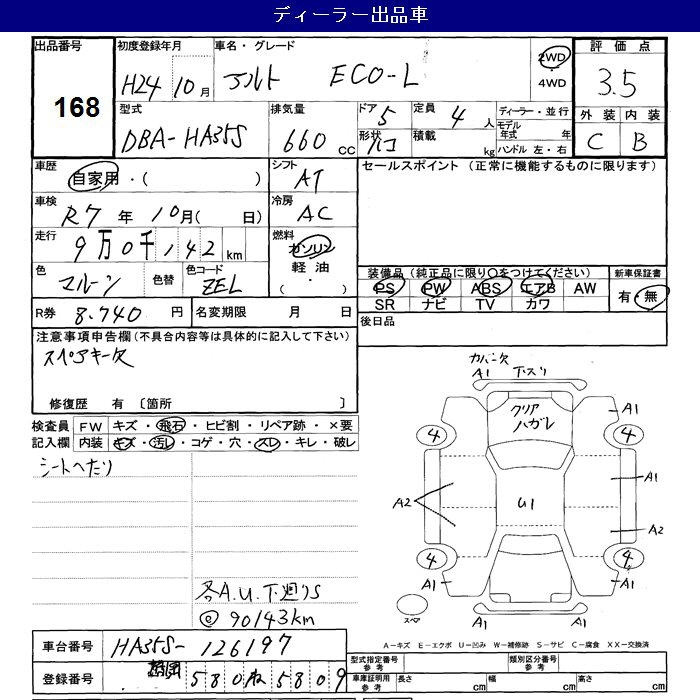 ディーラー出品車
出品番号
168
初度登録年月
H24 10月
車名・グレード
アルト ECO-L
2WD
・
4WD
評価点
3.5
外装 内装
C B
型式
DBA-HA35S
排気量
660 cc
ドア 5
形状 ハコ
定員 4 人
積載 kg
ディーラー・並行
モデル年式 年
ハンドル 左・右
車歴
自家用・( )
シフト
AT
セールスポイント (正常に機能するものに限ります)
車検
R7年 10月( 日)
冷房
AC
走行
9万0千142km
燃料
ガソリン
軽油
( ・ )
色
マルーン
色替
色コード
ZEL
装備品(純正品に限り○をつけてください)
新車保証書
PS PW ABS エアB AW
SR ナビ TV カワ
有・無
R券 8.740円
名変期限 月 日
後日品
注意事項申告欄(不具合内容等は具体的に記入して下さい)
スペアキー欠
修復歴 有 〔箇所 〕
検査員 FW キズ・飛石・ヒビ割・リペア跡・×要
記入欄 内装 キズ・汚レ・コゲ・穴・スレ・キレ・破レ
シートヘたり
各A.U.下廻りS
@ 90143km
カバー欠
A1 下スリ
クリア
ハガレ
A1
4 4
A1
A2 U1
A2
4 4
A1 A1
スペア
A1 A1
A-キズ E-エクボ U-凹み W-補修跡 S-サビ C-腐食 XX-交換済
車台番号 HA35S-126197
登録番号 580 ね 5809
型式指定番号
参考
類別区分番号
参考
車庫証明用
参考
長さ cm 幅 cm 高さ cm